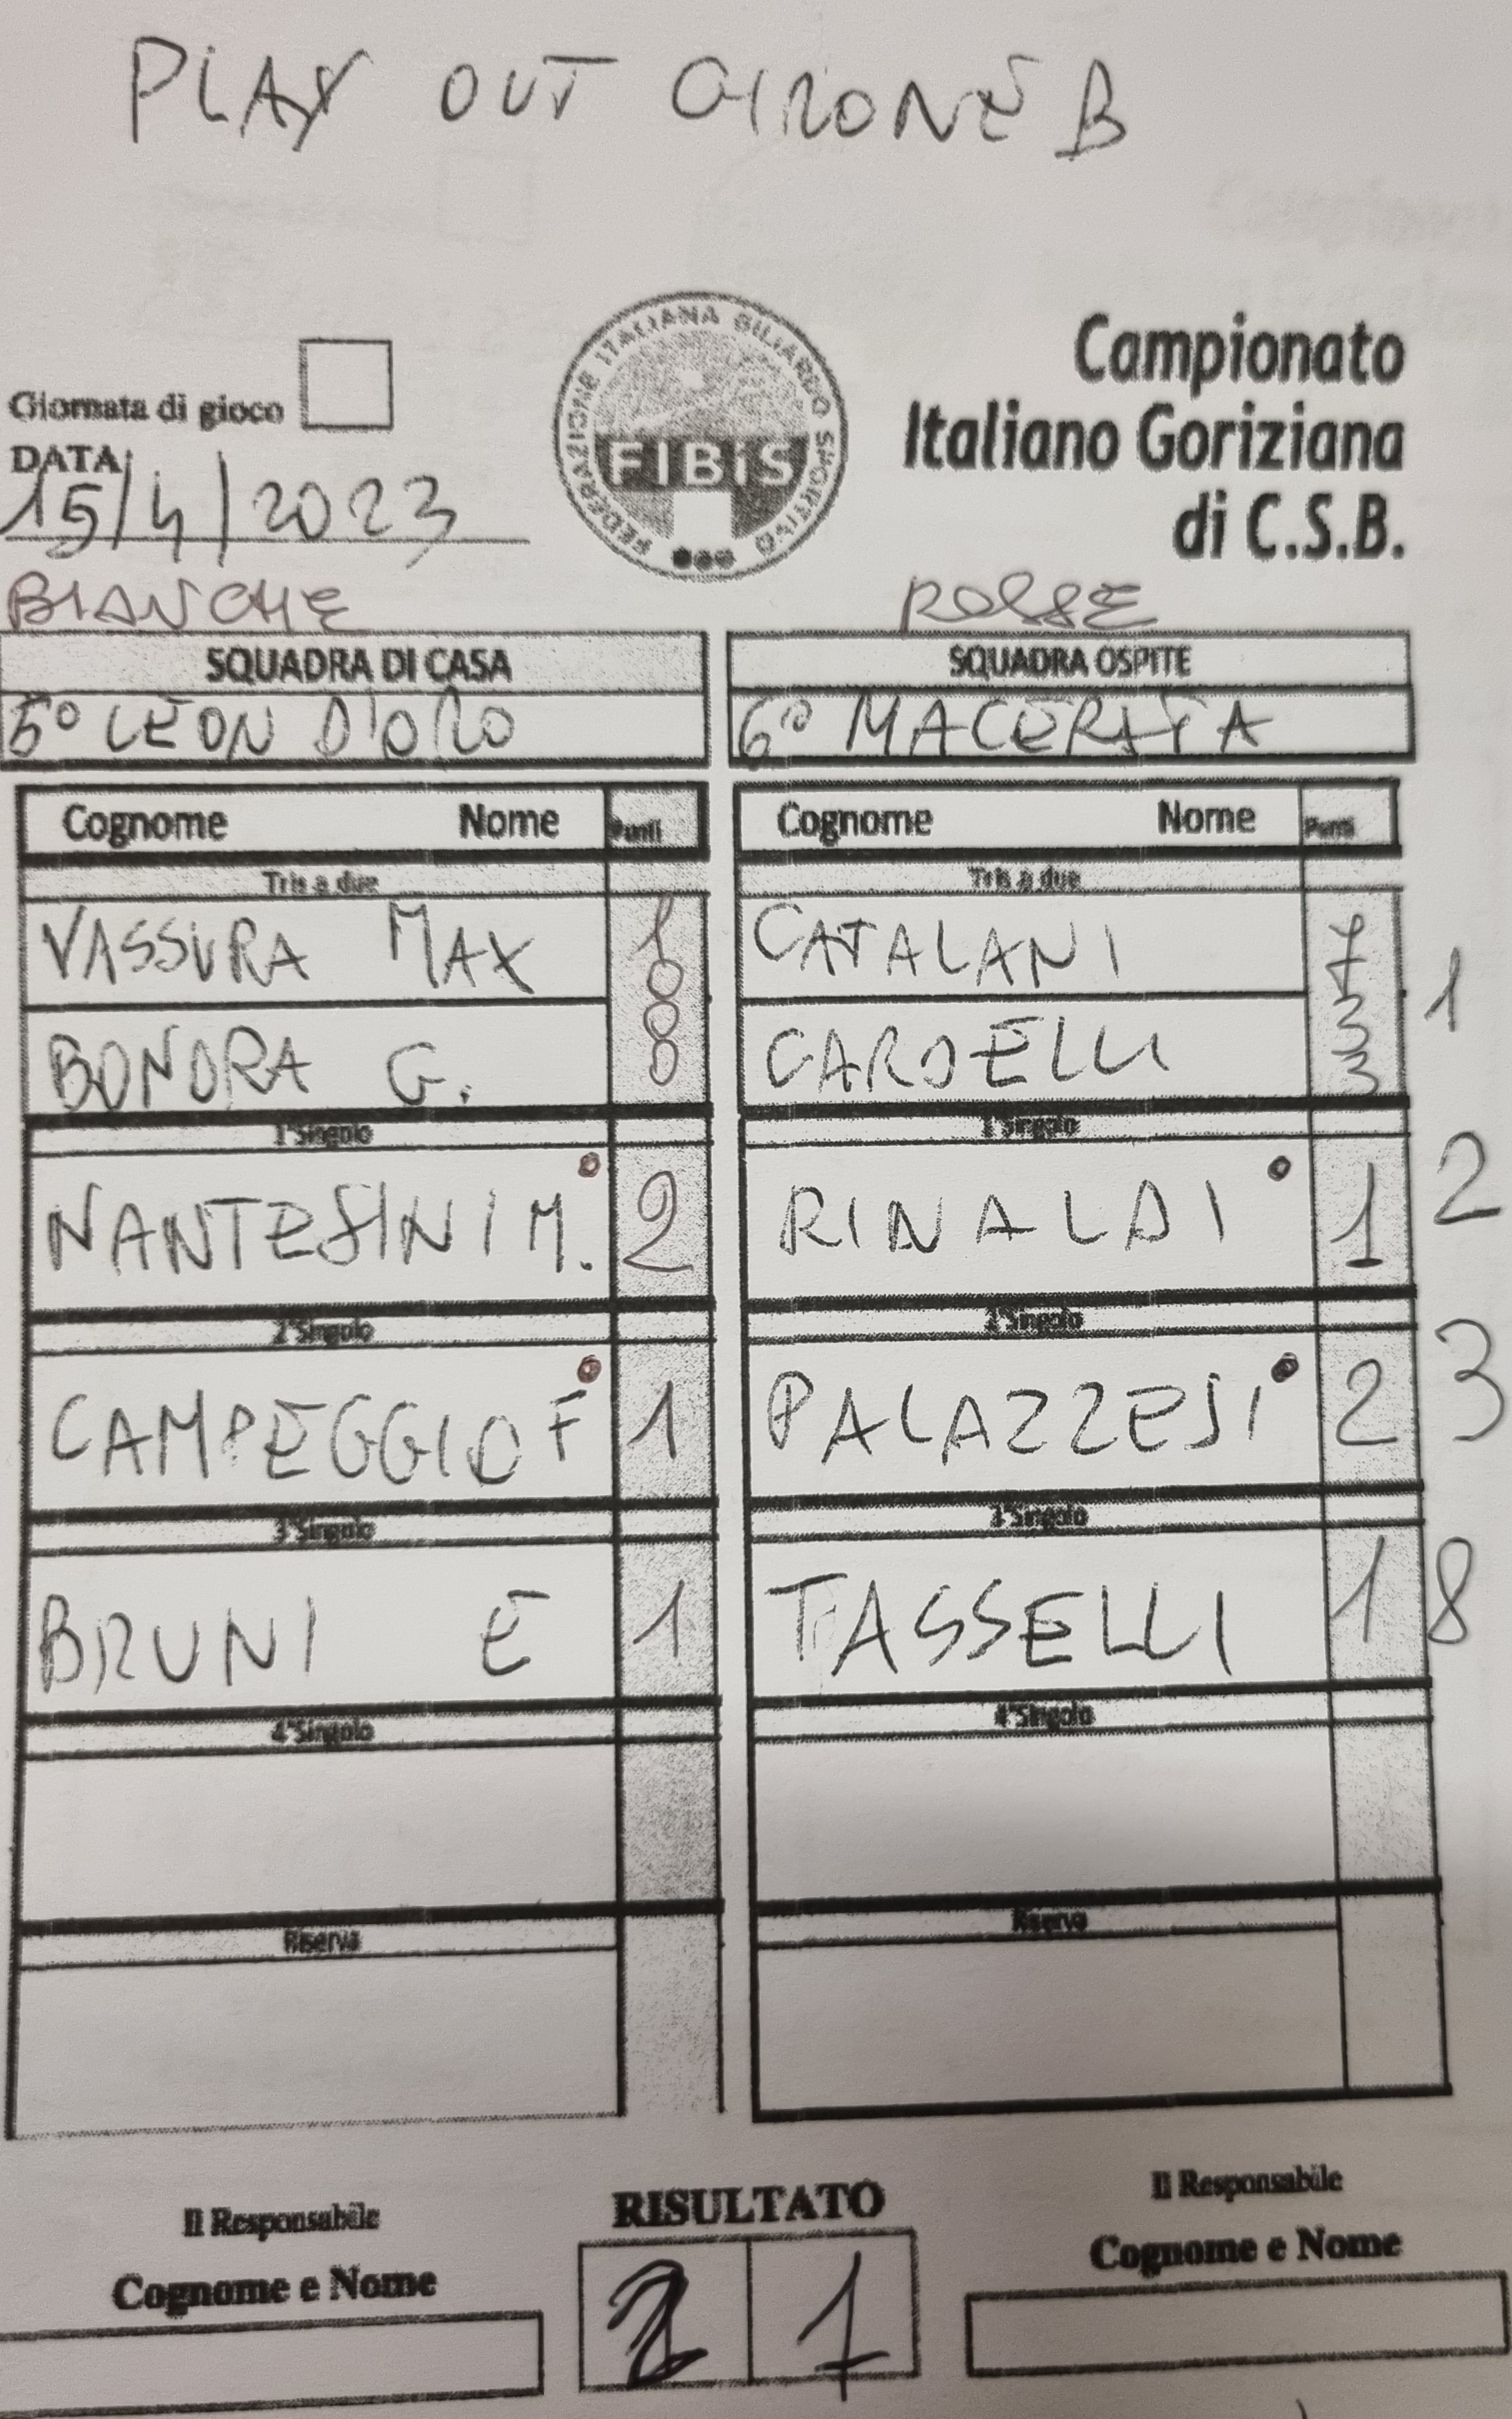 PLAY OUT GIRONE B
Giornata di gioco
DATA
15/4/2023
FEDERAZIONE ITALIANA BILIARDO SPORTIVO
FIBiS
Campionato
Italiano Goriziana
di C.S.B.
BIANCHE
ROSSE
SQUADRA DI CASA
SQUADRA OSPITE
5° LEON D'ORO
6° MACERATA
Cognome Nome Punti
Cognome Nome Punti
Tris a due
Tris a due
VASSURA MAX 1
0
CATALANI 7
1
BONORA G. 8
0
CARDELLI 3
3
1°Singolo
1°Singolo
NANTESINI M. 2
RINALDI 1 2
2°Singolo
2°Singolo
CAMPEGGIO F 1
PALAZZESI 2 3
3°Singolo
3°Singolo
BRUNI E 1
TASSELLI 1 8
4°Singolo
4°Singolo
Riserva
Riserva
Il Responsabile
Cognome e Nome
RISULTATO
1
Il Responsabile
Cognome e Nome